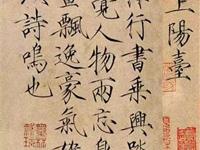 上陽臺
行書乘興踏
覺人物兩忘身
畫飄逸豪氣雄
詩鳴也